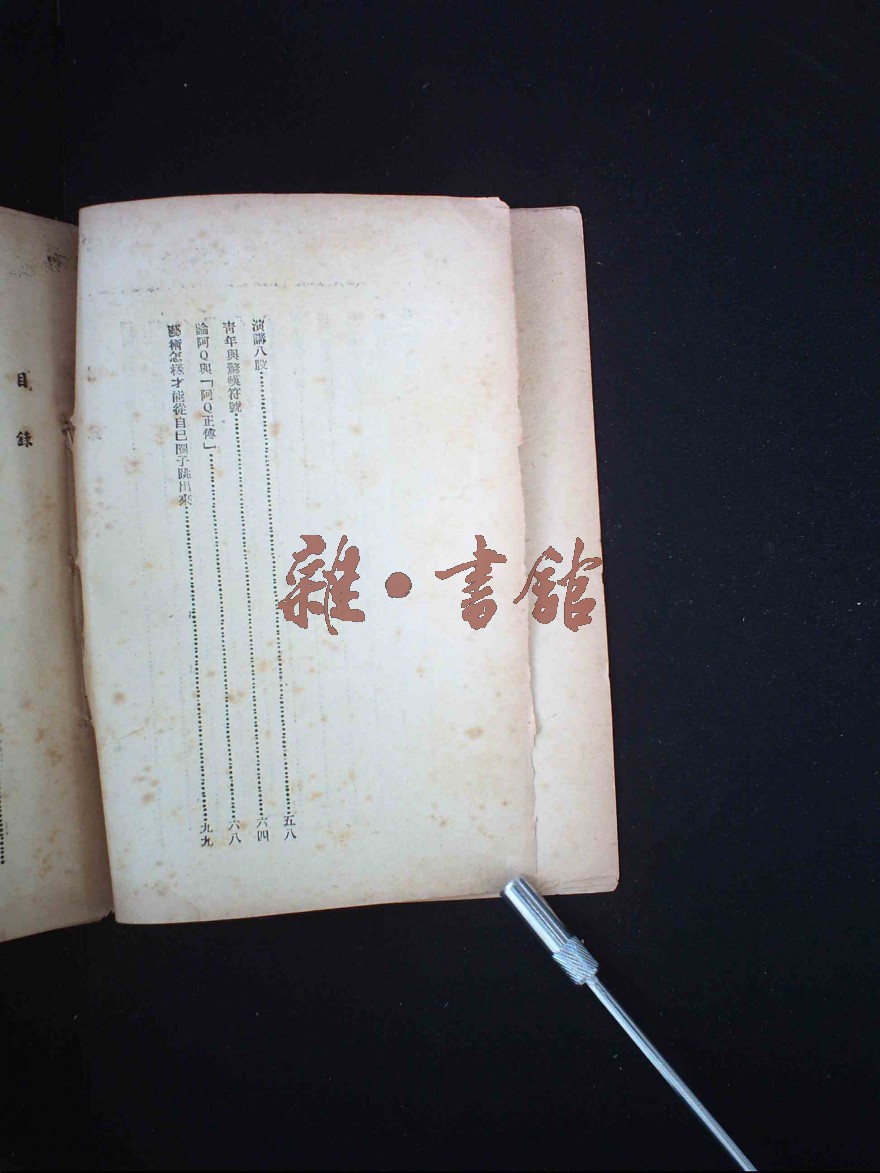 演講八股……五八
青年與驚嘆符號……六四
論阿Q與「阿Q正傳」……六八
藝術怎樣才能從自己圈子跳出來……九九
目錄
雜·書館